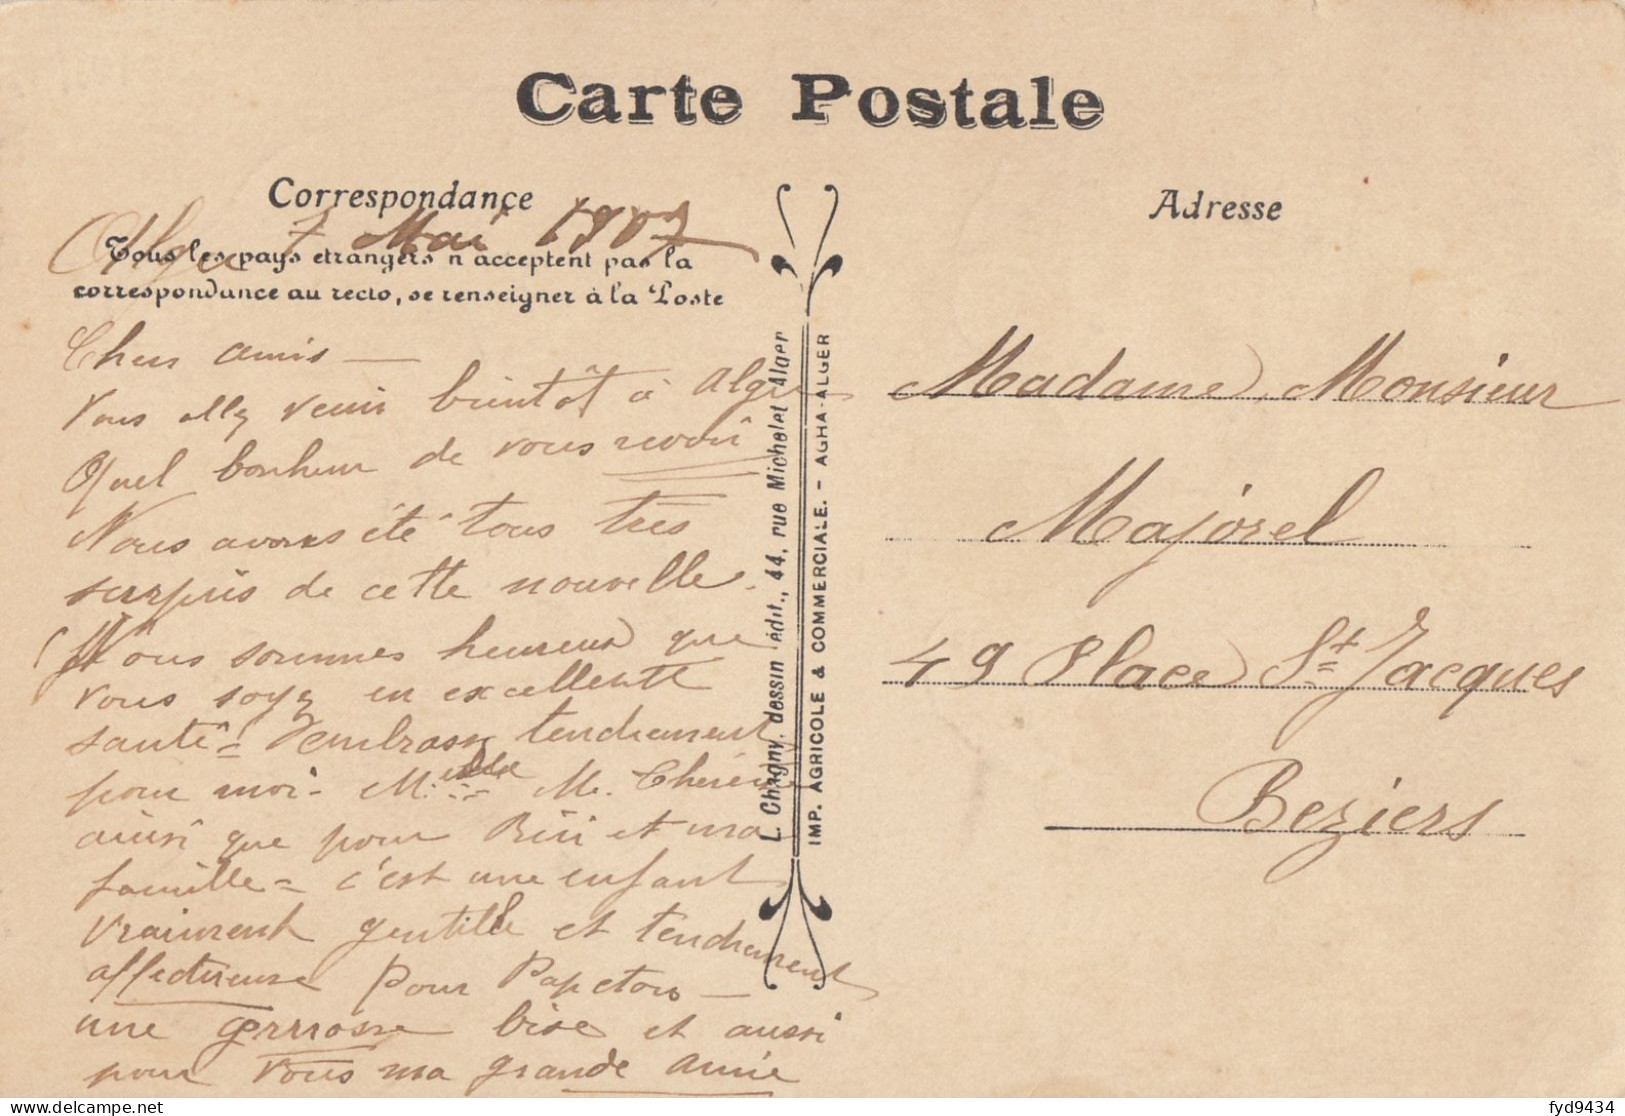 Carte Postale
Correspondance
Alger 7 Mai 1907
Tous les pays etrangers n'acceptent pas la
correspondance au recto, se renseigner à la Poste
Chers amis —
Vous allez venir bientôt à Alger
Quel bonheur de vous revoir
Nous avons été tous très
surpris de cette nouvelle.
Nous sommes heureux que
vous soyez en excellente
santé = J'embrasse tendrement
pour moi - Melle M. Thérèse
ainsi que pour Riri et ma
famille = c'est une enfant
vraiment gentille et tendrement
affectueuse pour
une grrrosse bise et aussi
pour vous ma grande amie
L. Chagny, dessin édit., 44, rue Michelet Alger
IMP. AGRICOLE & COMMERCIALE. - AGHA-ALGER
Adresse
Madame, Monsieur
Majorel
49 Place St Jacques
Beziers
fyd9434